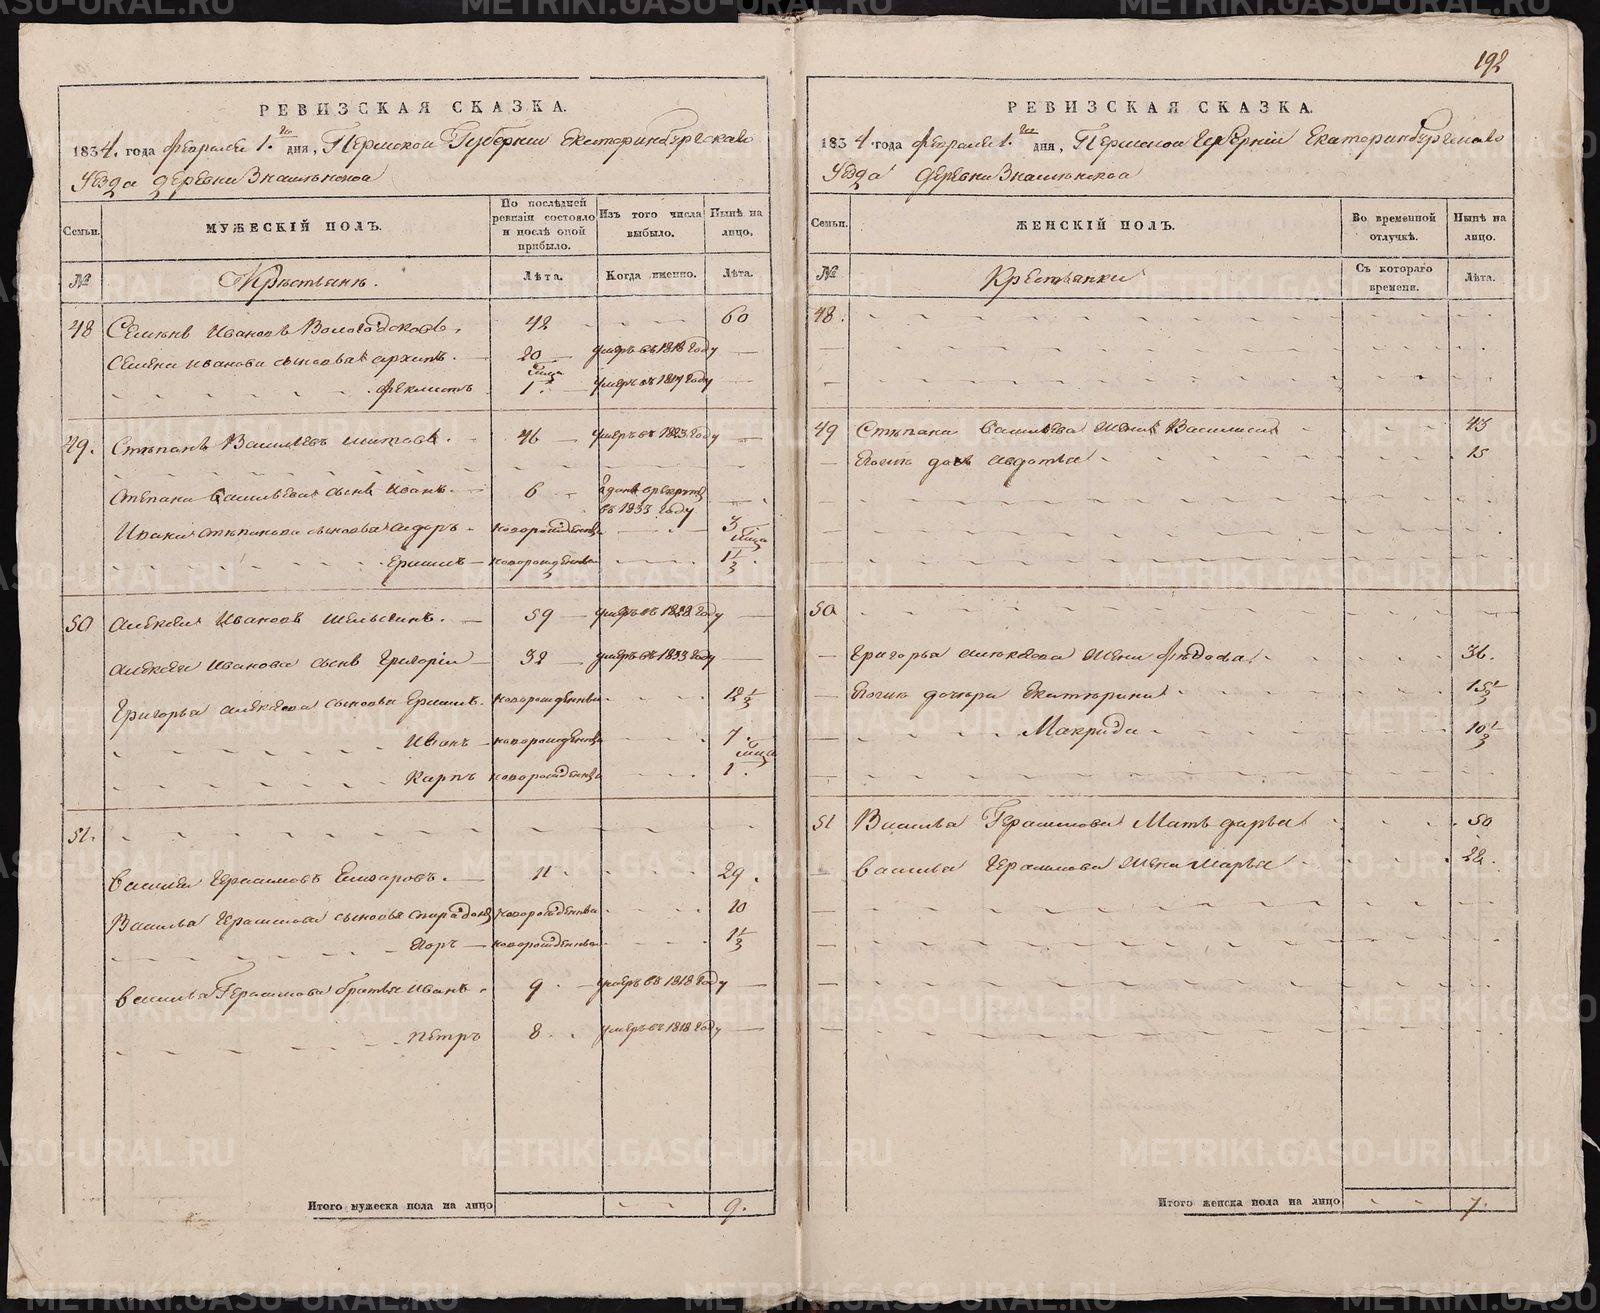 192
РЕВИЗСКАЯ СКАЗКА.
1834. года февраля 1.го дня, Пермской Губернии Екатеринбургскаго
Уезда деревни Знаменской
Семьи.
МУЖЕСКІЙ ПОЛЪ.
По послѣдней ревизіи состояло и послѣ оной прибыло.
Изъ того числа выбыло.
Нынѣ на лицо.
№
Крестьяне.
Лѣта.
Когда именно.
Лѣта.
48 Семенъ Ивановъ 42 60
Семена Иванова сыновья Архипъ. 20 умеръ въ 1818 году
Феклистъ 1. умеръ въ 1817 году
49. Степанъ Васильевъ 46 умеръ въ 1823 году
Степана Васильева сынъ Иванъ. 6 въ рекруты
въ 1833 году
Ивана Степанова сыновья Сидоръ новорожденны 3
Ермилъ новорожденны 1/3
50 Алексей Ивановъ 59 умеръ въ 1822 году
Алексея Иванова сынъ Григорій 32 умеръ въ 1833 году
Григорья Алексеева сыновья новорожденны 12 1/3
Иванъ новорожденны 7.
Карпъ новорожденны 1.
51.
Василей Герасимовъ 11 29.
Василья Герасимова сыновья новорожденны 10
новорожденны 1 1/3
Василья Герасимова братья Иванъ. 9 умеръ въ 1818 году
Петръ 8 умеръ въ 1818 году
Итого мужеска пола на лицо 9.
РЕВИЗСКАЯ СКАЗКА.
1834 года февраля 1.го дня, Пермской Губерніи Екатеринбургскаго
Уезда деревни Знаменской
Семьи.
ЖЕНСКІЙ ПОЛЪ.
Во временной отлучкѣ.
Нынѣ на лицо.
№
Крестьянки
Съ котораго времени.
Лѣта.
48.
49 Степана Васильева жена Василиса 43
Егоже дочь Авдотья 15
50
Григорья Алексеева жена Федосья 36.
Егоже дочери Екатерина 15 1/3
Макрида 10 1/3
51 Василья Герасимова мать Дарья 50
Василья Герасимова жена Марья 22.
Итого женска пола на лицо 7.
METRIKI.GASO-URAL.RU